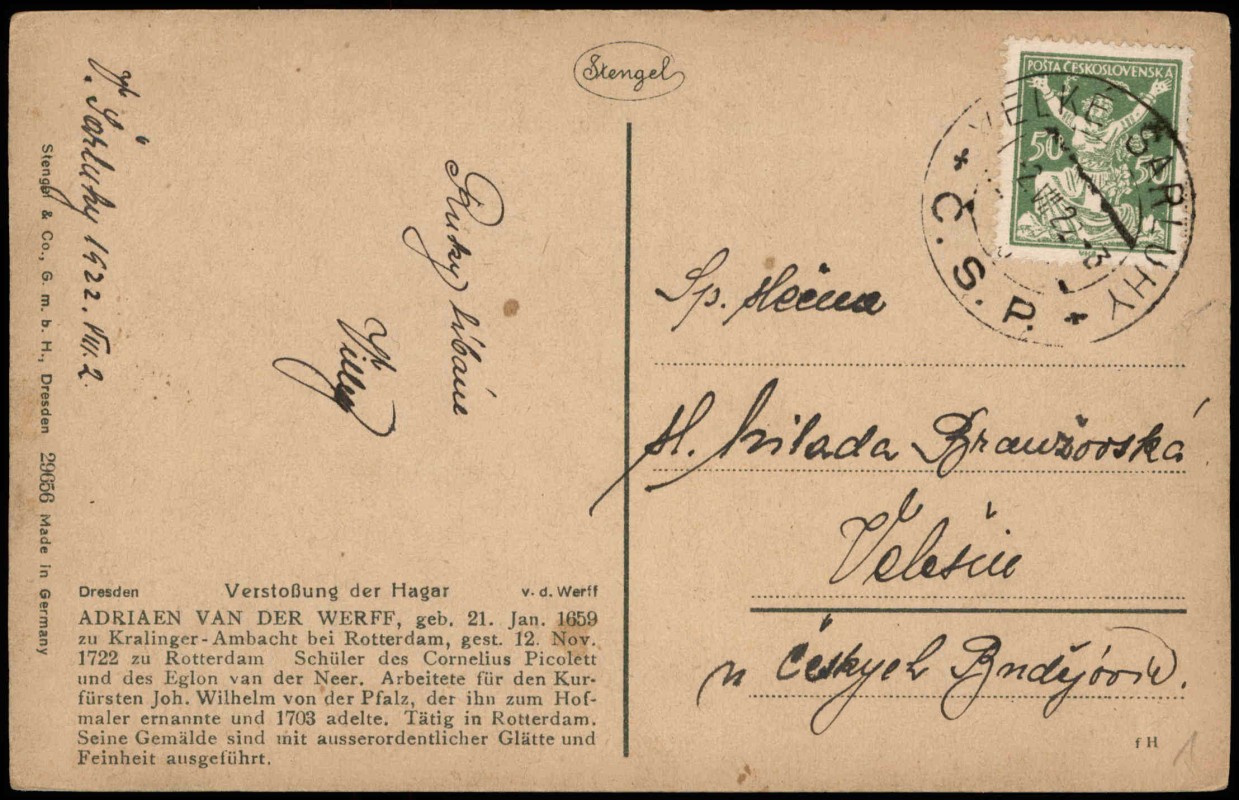 Stengel
POŠTA ČESKOSLOVENSKÁ
50
VELKÉ ŠARLUHY
2.VIII.22.-3
* Č.S.P. *
V. Šarluhy 1922. VIII. 2.
Ruky líbáne
Villy
Sp. slečna
sl. Milada Branžovská
Velešín
u Českych Budějovic.
Dresden Verstoßung der Hagar v. d. Werff
ADRIAEN VAN DER WERFF, geb. 21. Jan. 1659
zu Kralinger-Ambacht bei Rotterdam, gest. 12. Nov.
1722 zu Rotterdam Schüler des Cornelius Picolett
und des Eglon van der Neer. Arbeitete für den Kur-
fürsten Joh. Wilhelm von der Pfalz, der ihn zum Hof-
maler ernannte und 1703 adelte. Tätig in Rotterdam.
Seine Gemälde sind mit ausserordentlicher Glätte und
Feinheit ausgeführt.
Stengel & Co., G. m. b. H., Dresden 29656 Made in Germany
f H
1